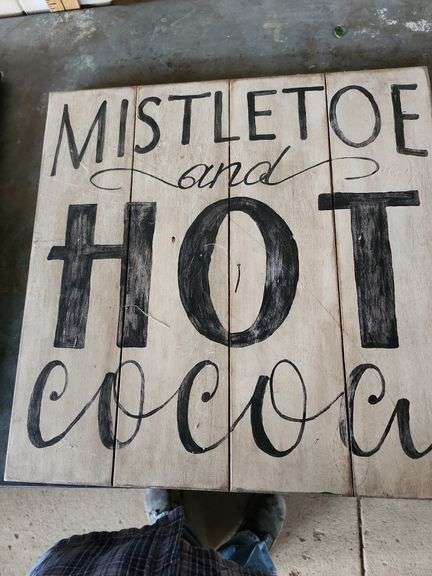 MISTLETOE
and
HOT
cocoa